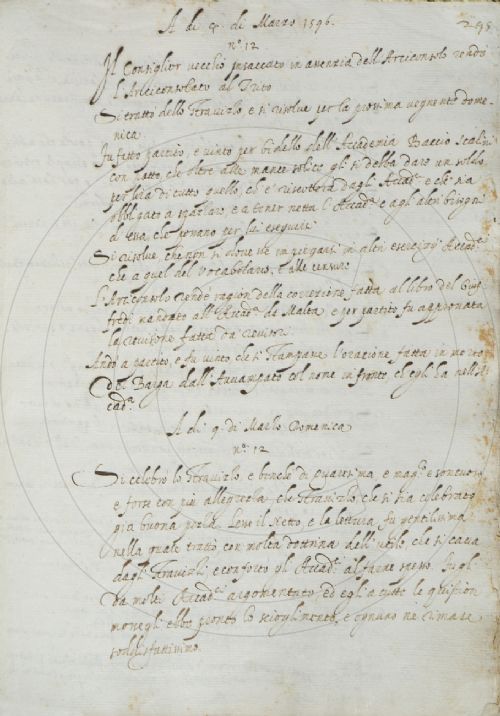 A dì 6. di Marzo 1596.
295
n.° 12
Il Consiglier vecchio insaccato in assenzia dell'Arciconsolo rendé
l'Arciconsolato al Trito
Si trattò dello Stravizzo, e si risolvé per la prossima vegnente dome-
nica
Fu fatto partito, e vinto per bidello dell'Accademia Baccio
con patto, che oltre alle mance solite gli si debba dare un soldo
per lira di tutto quello, ch'e' riscoterà dagli Accad.ci e che sia
obbligato a spazzare, e a tener netta l'Accad.a e agli altri bisogni
d'essa, che possano per lui eseguirsi
Si risolvé, che non si deve impiegarsi in altri esercizi Accad.ci
che a quel del Vocabolario, e alle censure
L'Arciconsolo rendé ragion della correzione fatta al libro del
mandato all' di Malta e per partito fu approvata
la revisione fatta da' revisori
Andò a partito, e fu vinto che si stampasse l'orazione fatta in morte
del Barga dall'Avvampato col nome in fronte, ch'egli ha nell'Ac-
cad.a
A dì 9. di Marzo Domenica
n.° 12
Si celebrò lo Stravizzo, e benché di quaresima e mag.co e sontuoso
e forse con più allegrezza, che Stravizzo, che si sia celebrato
già buona pezza. Lesse il Netto, e la lettura fu gentilissima
nella quale trattò con molta dottrina dell'utile, che si cava
dagli Stravizzi, e confortò gli Accad.ci al farne spesso.
da molti Accad.ci argomentato, ed egli a tutte le quistion
mossegli ebbe pronto lo scioglimento, e ognuno ne rimase
soddisfattissimo.